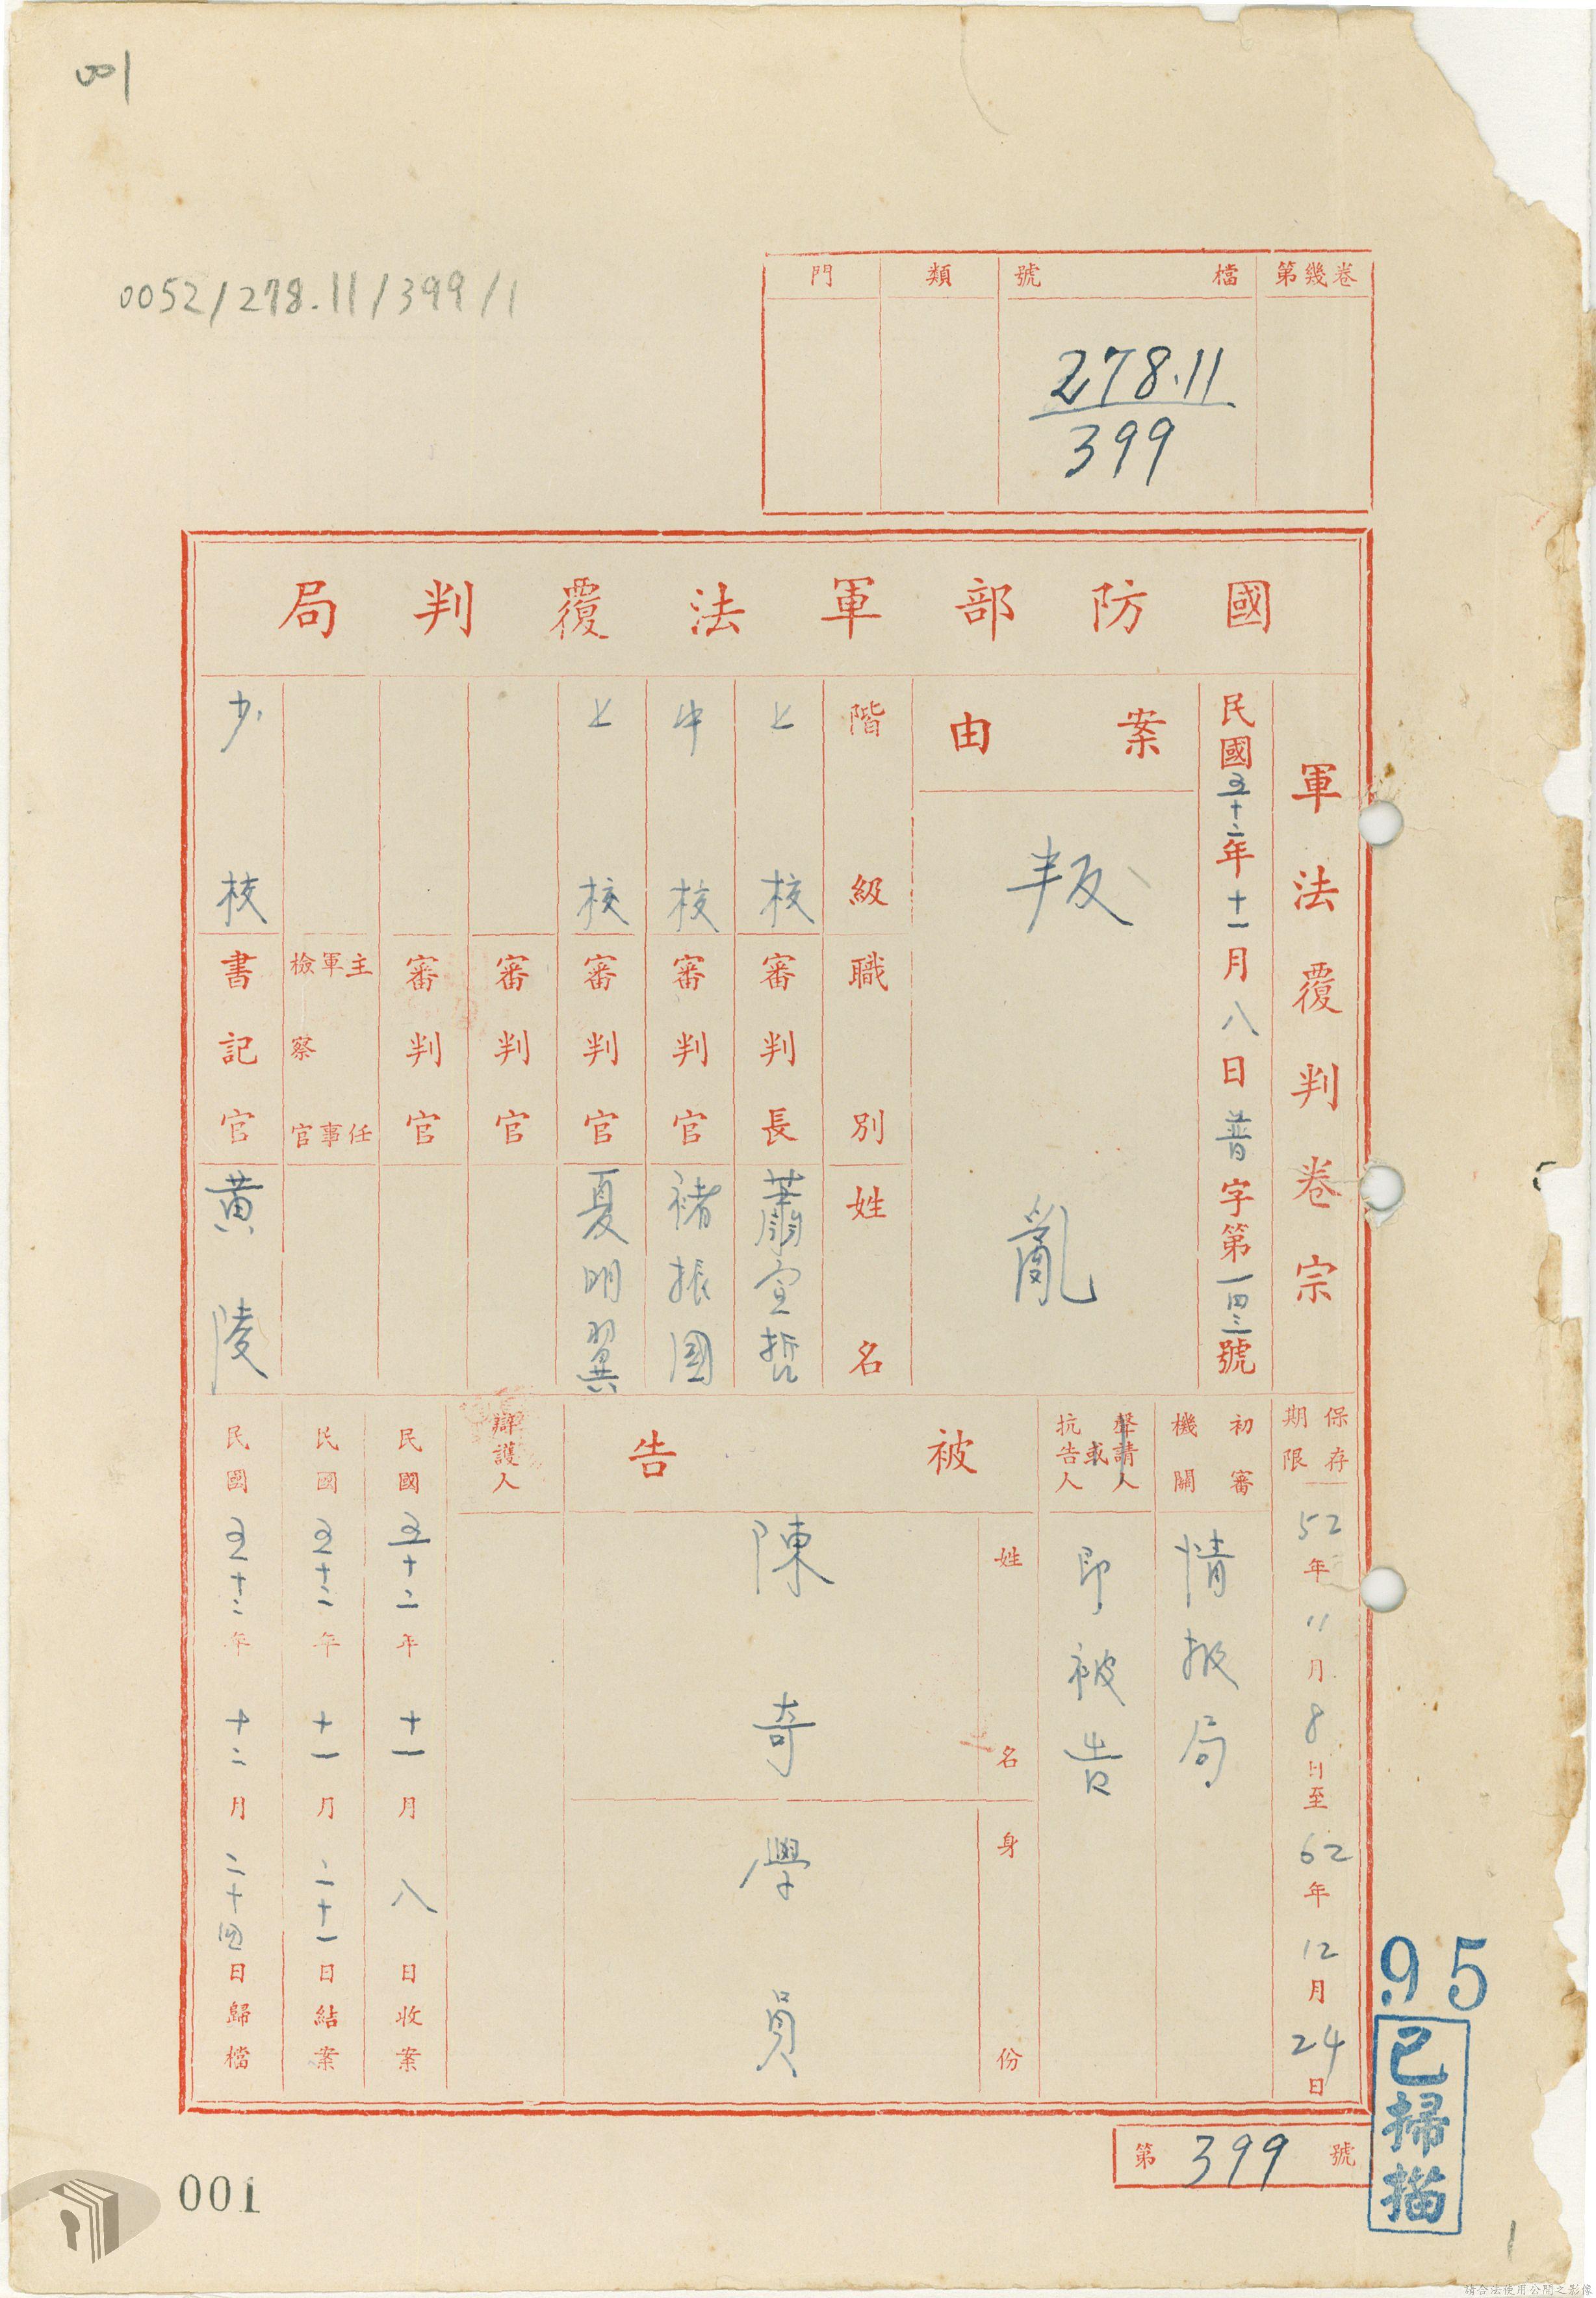 001
0052/278.11/399/1
第幾卷
檔號
278.11
399
類
門
國防部軍法覆判局
軍法覆判卷宗
民國五十二年十一月八日普字第一四三號
案由
叛亂
階級 職別 姓名
上校 審判長 蕭宣哲
中校 審判官 褚振國
上校 審判官 夏明翼
審判官
審判官
主任軍事檢察官
少校 書記官 黃陵
保存期限
52年11月8日至62年12月24日
初審機關
情报局
聲請人或抗告人
即被告
被告
姓名
陳奇
身份
學員
辯護人
民國五十二年十一月八日收案
民國五十二年十一月二十一日結案
民國五十二年十二月二十四日歸檔
第399號
95
已掃描
001
1
請合法使用公開之影像